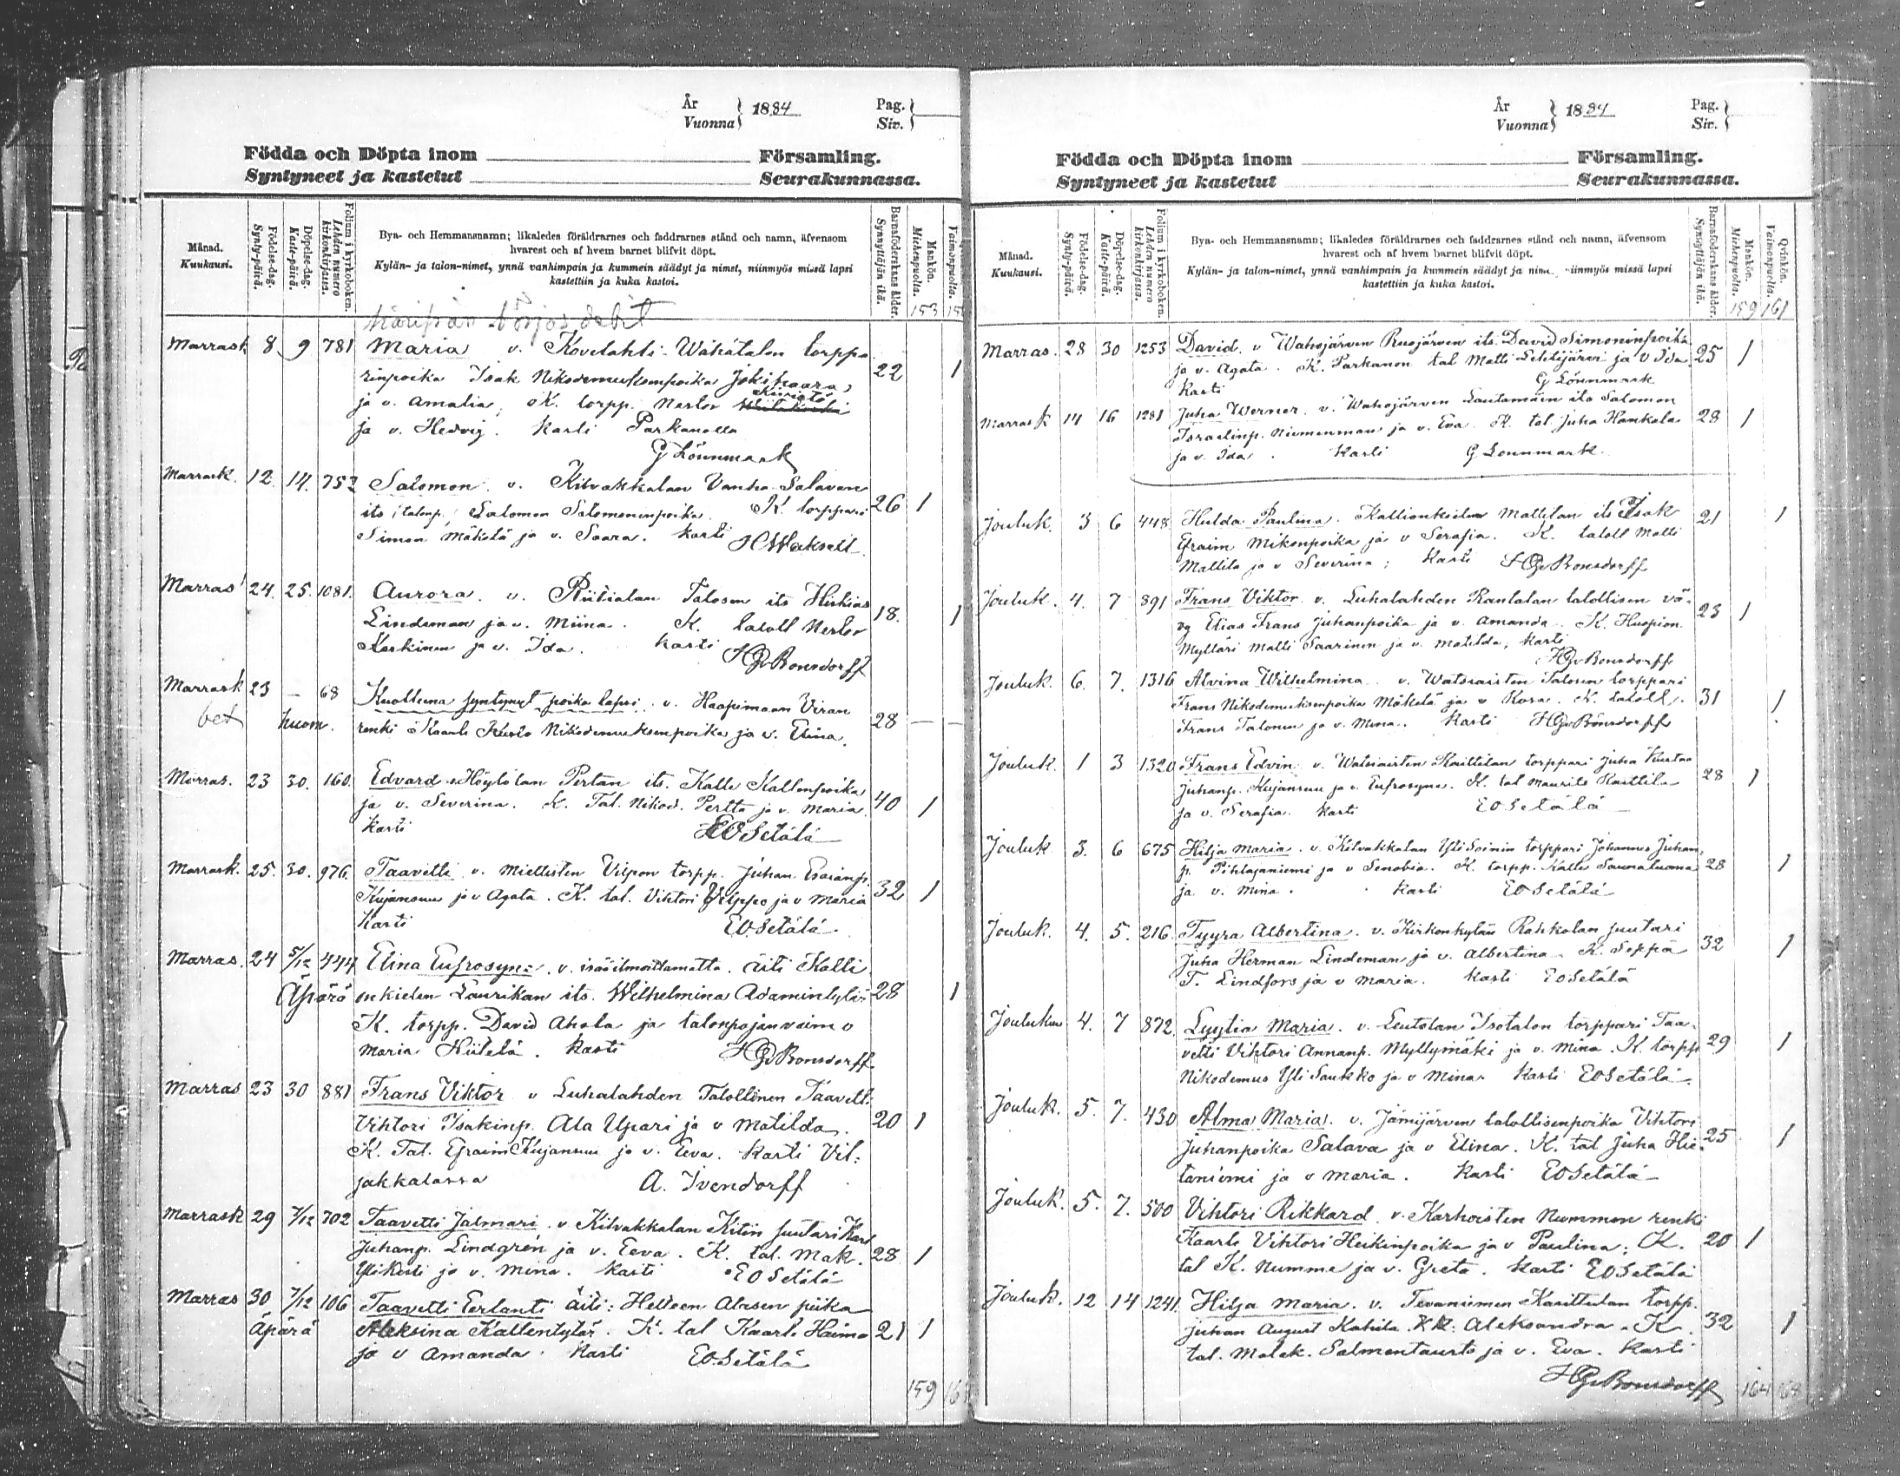 År
Vuonna } 1884
Pag.
Siv. }
Födda och Döpta inom Församling.
Syntyneet ja kastetut Seurakunnassa.
Månad.
Kuukausi.
Födelse-dag.
Synty-päivä.
Döpelse-dag.
Kaste-päivä.
Folium i kyrkoboken.
Lehden numero kirkonkirjassa.
Bya- och Hemmansnamn; likaledes föräldrarnes och faddrarnes stånd och namn, äfvensom
hvarest och af hvem barnet blifvit döpt.
Kylän- ja talon-nimet, ynnä vanhimpain ja kummein säädyt ja nimet, niinmyös missä lapsi
kastettiin ja kuka kastoi.
Barnaföderskans ålder.
Synnyttäjän ikä.
Mankön.
Miehenpuolta.
Vaimonpuolta.
153
Marrask 8 9 781 Maria v. Kovelahti Wähätalon torppa
rinpoika Isak Nikodemuksenpoika Jokihaara 22 1
ja v. Amalia; K. torpp. Nestor
ja v. Hedvig. Kasti Parkanolla
G Lönnmark
Marrask. 12. 14. 753 Salomon v. Kilvakkalan Vanha Salavan
its. talonp. Salomon Salomoninpoika. K. torppari 26 1
Simon Mäkelä ja v. Saara. Kasti
Marras 24. 25. 1081. Aurora. v. Riitialan Talosen its Hiskias
Lindeman ja v. Miina. K. taloll Nestor 18. 1
Koskinen ja v. Ida. Kasti
HGvBonsdorff
Marrask 23 — 68 Kuollena syntynyt poika lapsi. v. Haapimaan Viran
huom. renki Kaarle Kusto Nikodemuksenpoika ja v. Elina. 28 — —
Marras. 23 30. 160. Edvard v Höytölän Pertan its. Kalle Kallenpoika
ja v. Severina. K. Tal. Nikod. Perttu ja v. Maria 40 1
Kasti EOSetälä
Marrask. 25. 30. 976. Taavetti v. Miettisten Vilpon torpp. Juhan Esaianp.
Kujansuu ja v Agata. K. tal. Vihtori Vilppo ja v Maria 32 1
Kasti EOSetälä
Marras. 24 5/12 444 Elina Eufrosyne. v. isä ilmoittamatta. äiti Kalli
Äpärä onkielen Laurikan its. Wilhelmina Adamintytär 28 1
K. torpp. David Ahola ja talonpojanvaimo
Maria Hiitelä. Kasti HGvBonsdorff
Marras 23 30 881 Frans Viktor v Luhalahden Talollinen Taavett
Vihtori Isakinp. Ala Upari ja v Matilda. 20 1
K. Tal. Efraim Kujansuu ja v. Eeva. Kasti Vil-
jakkalassa A. Ivendorff
Marrask 29 7/12 702 Taavetti Jalmari. v Kilvakkalan Kitin Suutari Karl
Juhanp. Lindgrén ja v. Eeva. K. tal. Mak. 28 1
Ylikerti ja v. Mina. Kasti EO Setälä
Marras 30 7/12 106 Taavetti Eerlanti äiti: Helteen Alasen piika
äpärä Aleksina Kallentytär. K. tal Kaarl. Haimo 21 1
ja v Amanda. Kasti EOSetälä
159
År
Vuonna } 1884
Pag.
Siv. }
Födda och Döpta inom Församling.
Syntyneet ja kastetut Seurakunnassa.
Månad.
Kuukausi.
Födelse-dag.
Synty-päivä.
Döpelse-dag.
Kaste-päivä.
Folium i kyrkoboken.
Lehden numero kirkonkirjassa.
Bya- och Hemmansnamn; likaledes föräldrarnes och faddrarnes stånd och namn, äfvensom
hvarest och af hvem barnet blifvit döpt.
Kylän- ja talon-nimet, ynnä vanhimpain ja kummein säädyt ja nime niinmyös missä lapsi
kastettiin ja kuka kastoi.
Barnaföderskans ålder.
Synnyttäjän ikä.
Mankön.
Miehenpuolta.
Qvinkön.
Vaimonpuolta.
159 161
Marras. 28 30 1253 David. v Wahojärven Ruojärven its. David Simoninpoika
ja v. Agata. K. Parkanon tal Matti Lehtijärvi ja v Ida 25 1
Kasti G Lönnmark
Marrask 14 16 1281 Juha Werner. v. Wahojärven Lautamäin its Salomon
Israelinp. Niemenmaa ja v. Eva. K. tal. Juha Hankala 28 1
ja v. Ida. Kasti G Lönnmark.
Jouluk. 3 6 448 Hulda Paulina. Kallionkielen Mattilan its Isak 21 1
Efraim Mikonpoika ja v Serafia. K. taloll Matti
Mattila ja v Severina; Kasti HGvBonsdorff
Jouluk. 4. 7 891 Frans Viktor v. Luhalahden Rantalan talollisen vä-
vy Elias Frans Juhanpoika ja v. Amanda. K. Huopion 23 1
Mylläri Matti Saarinen ja v. Matilda, Kasti
HGvBonsdorff
Jouluk. 6. 7. 1316 Alvina Wilhelmina v. Watsiaisten Talosen torppari
Frans Nikodemuksenpoika Mäkelä ja v Rosa. K. taloll. 31 1
Frans Talonen ja v. Mina. Kasti HGvBonsdorff
Jouluk. 1 3 1320 Frans Edvin v. Watsiaisten Kaittilan torppari Juha Kustaa
Juhanp. Kujansuu ja v. Eufrosyne. K. tal Maurits Kaittila 28 1
ja v. Serafia. Kasti EOSetälä
Jouluk 3. 6 675 Hilja Maria. v. Kilvakkalan Yli Soinin torppari Johannes Juhan-
p. Pihlajaniemi ja v Senobia. K. torpp. Kalle Saunaluoma 28 1
ja v. Mina. Kasti EOSetälä
Jouluk. 4. 5. 216. Tyyra Albertina. v. Kirkonkylän Rahkolan Suutari
Juha Herman Lindeman ja v. Albertina. K. Seppä 32 1
T. Lindfors ja v Maria. Kasti EOSetälä
Jouluku 4. 7 872 Lyytia Maria. v. Leutolan Isotalon torppari Taa-
vetti Vihtori Annanp. Myllymäki ja v. Mina. K. torpp. 29 1
Nikodemus Yli Saukko ja v Mina. Kasti EOSetälä
Jouluk. 5. 7. 430 Alma Maria. v. Jämijärven talollisenpoika Vihtori
Juhanpoika Salava ja v Elina. K. tal Juha Hie- 25 1
taniemi ja v Maria. Kasti EOSetälä
Jouluk. 5. 7. 500 Vihtori Rikkard v. Karhoisten Nummen renki
Kaarle Vihtori Heikinpoika ja v Paulina; K. 20 1
tal K. Numme ja v. Greta. Kasti EOSetälä
Jouluk. 12 14 1241 Hilja Maria. v. Tevaniemen Kasittulan torpp.
Juhan August Kahila. Aleksandra. K 32 1
tal. Malak. Salmentausta ja v. Eva. Kasti
HGvBonsdorff 164